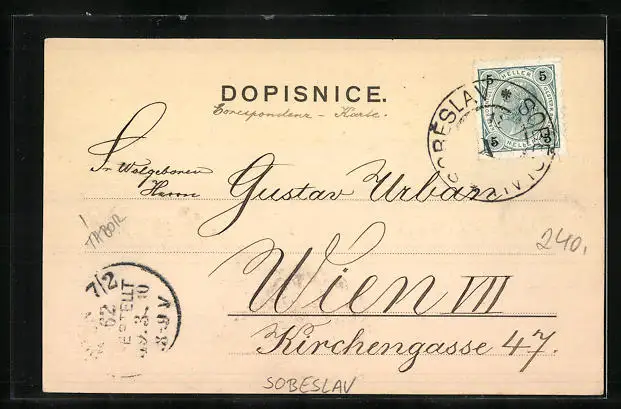 DOPISNICE.
Correspondenz - Karte.
Sr. Wolgeboren
Herrn
Gustav Urban
Wien VII
Kirchengasse 47.
5 HELLER 5
5 5
SOBĚSLAV * SOB
TABOR
240.
7/2
62
BESTELLT
9.3. 10
8-9 V
SOBESLAV